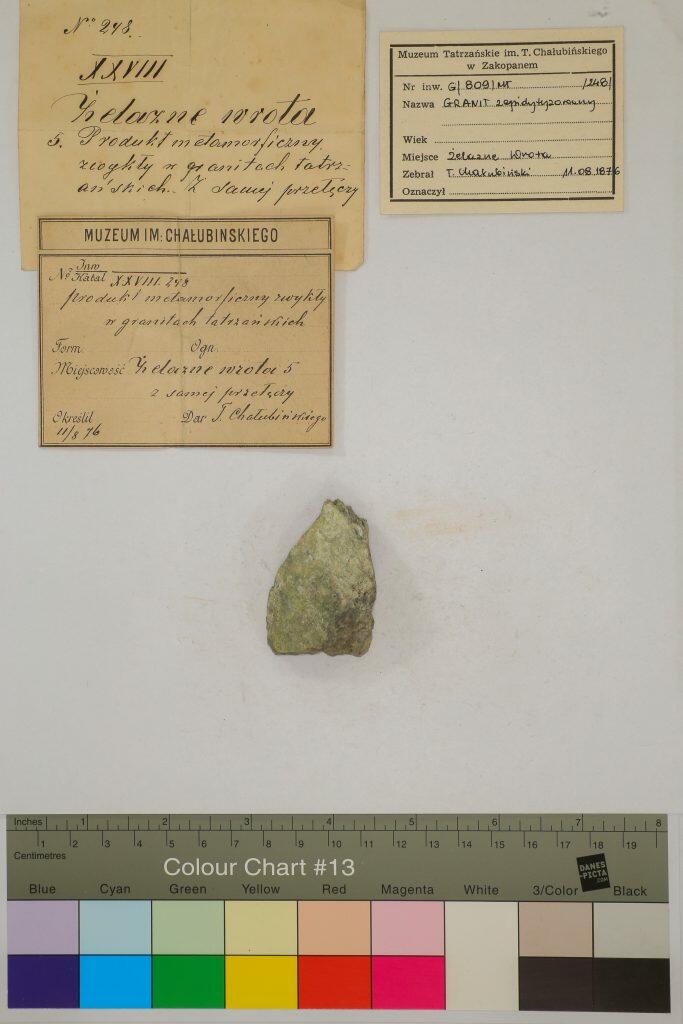 No 248.
XXVIII
Żelazne wrota
5. Produkt metamorficzny,
zwykły w granitach tatrz-
ańskich. Z samej przełęczy
MUZEUM IM. CHAŁUBINSKIEGO
No Inw Katal XXVIII. 248
produkt metamorficzny zwykły
w granitach tatrzańskich
Form. Ogn.
Miejscowość Żelazne wrota 5
z samej przełęczy
Określił Dar T. Chałubińskiego
11/8 76
Muzeum Tatrzańskie im. T. Chałubińskiego
w Zakopanem
Nr inw. G/809/MT /248/
Nazwa GRANIT zepidotyzowany
Wiek
Miejsce Żelazne Wrota
Zebrał T. Chałubiński 11.08.1876
Oznaczył
Inches 1 2 3 4 5 6 7 8
1 2 3 4 5 6 7 8 9 10 11 12 13 14 15 16 17 18 19
Centimetres
Colour Chart #13
DANES
-PICTA
.COM
Blue Cyan Green Yellow Red Magenta White 3/Color Black